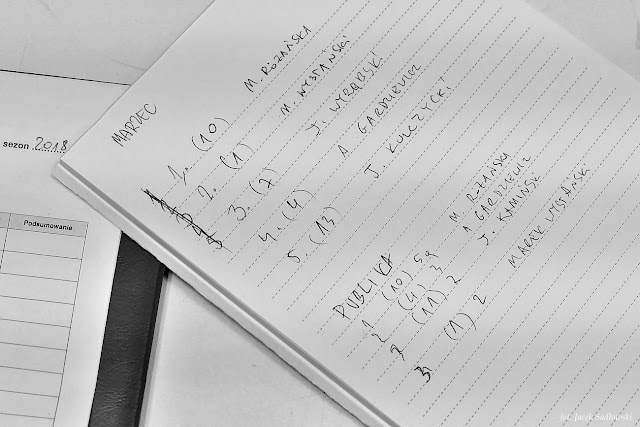 MARZEC
1. (10) M. RÓŻAŃSKA
2. (1) M. WYSPAŃSKI
3. (7) J. WYRĘBSKI
4. (4) A. GARDZIEWICZ
5. (13) J. KULCZYCKI
PUBLIKA
1. (10) 5g M. RÓŻAŃSKA
2 (4) 3 A GARDZIEWICZ
3 (11) 2 J. KAMIŃSKI
3. (1) 2 MAREK WYSPAŃSKI
sezon 2018
Podsumowanie
fot. Jacek Sadłowski